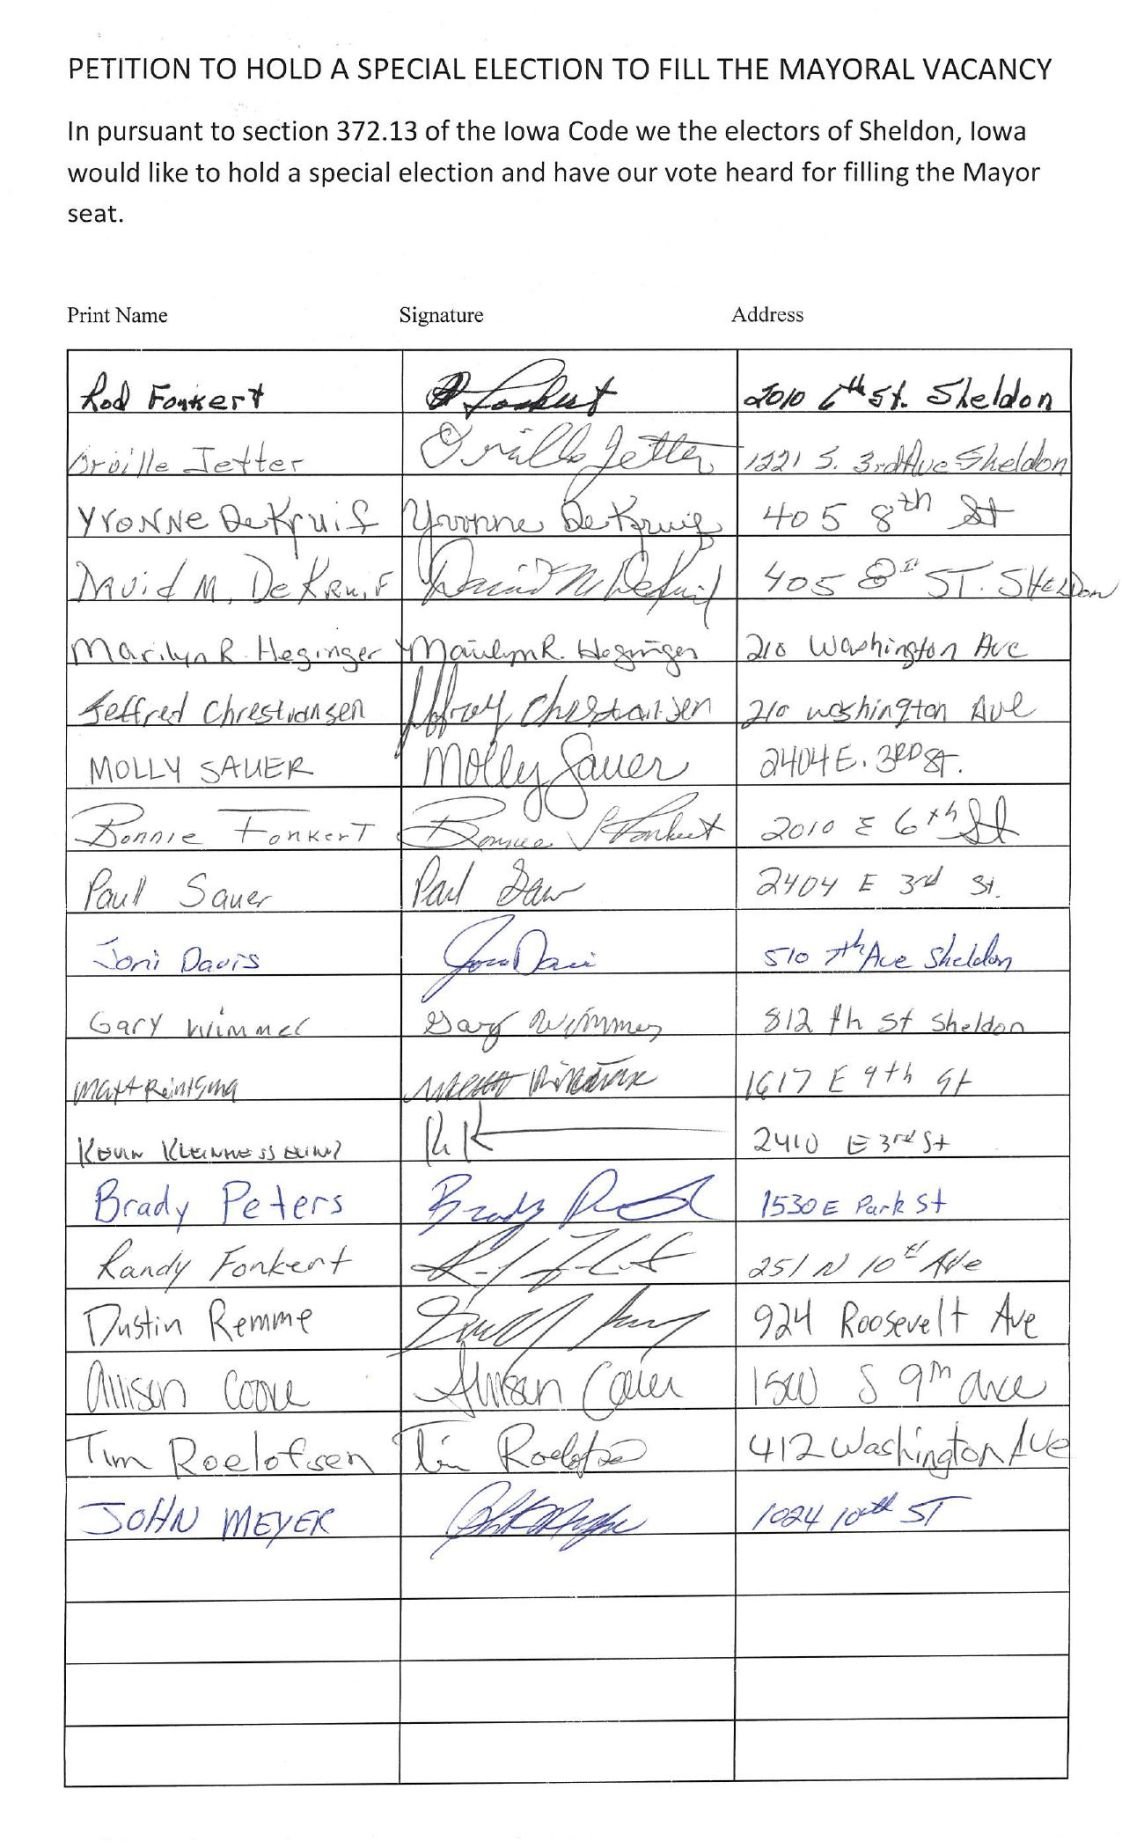 PETITION TO HOLD A SPECIAL ELECTION TO FILL THE MAYORAL VACANCY
In pursuant to section 372.13 of the Iowa Code we the electors of Sheldon, Iowa
would like to hold a special election and have our vote heard for filling the Mayor
seat.
Print Name Signature Address
Rod Fonkert Fonkert 2010 6th St. Sheldon
Orville Jetter Orville Jetter 1221 S. 3rd Ave Sheldon
Yvonne DeKruif Yvonne DeKruif 405 8th St
David M. DeKruif David M DeKruif 405 8th ST. SHELDon
Marilyn R. Heginger Marilyn R. Heginger 210 Washington Ave
Jeffrey Christiansen 210 Washington Ave
MOLLY SAUER Molly Sauer 2404 E. 3RD St.
Bonnie Fonkert Bonnie Fonkert 2010 E 6th St
Paul Sauer Paul 2404 E 3rd St.
Joni Davis Joni Davis 510 7th Ave Sheldon
Gary Wimmer Gary Wimmer 812 St Sheldon
Matt 1617 E 9th St
Kevin 2410 E 3rd St
Brady Peters Brady 1530 E Park St
Randy Fonkert 251 N 10th Ave
Dustin Remme 924 Roosevelt Ave
Allison Allison S 9th Ave
Tim Roelofsen Tim Roelofsen 412 Washington Ave
JOHN MEYER 1024 10th ST